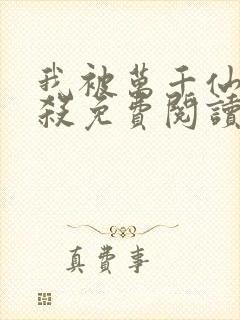 我被萬千仙
殺免費閱讀
真費事